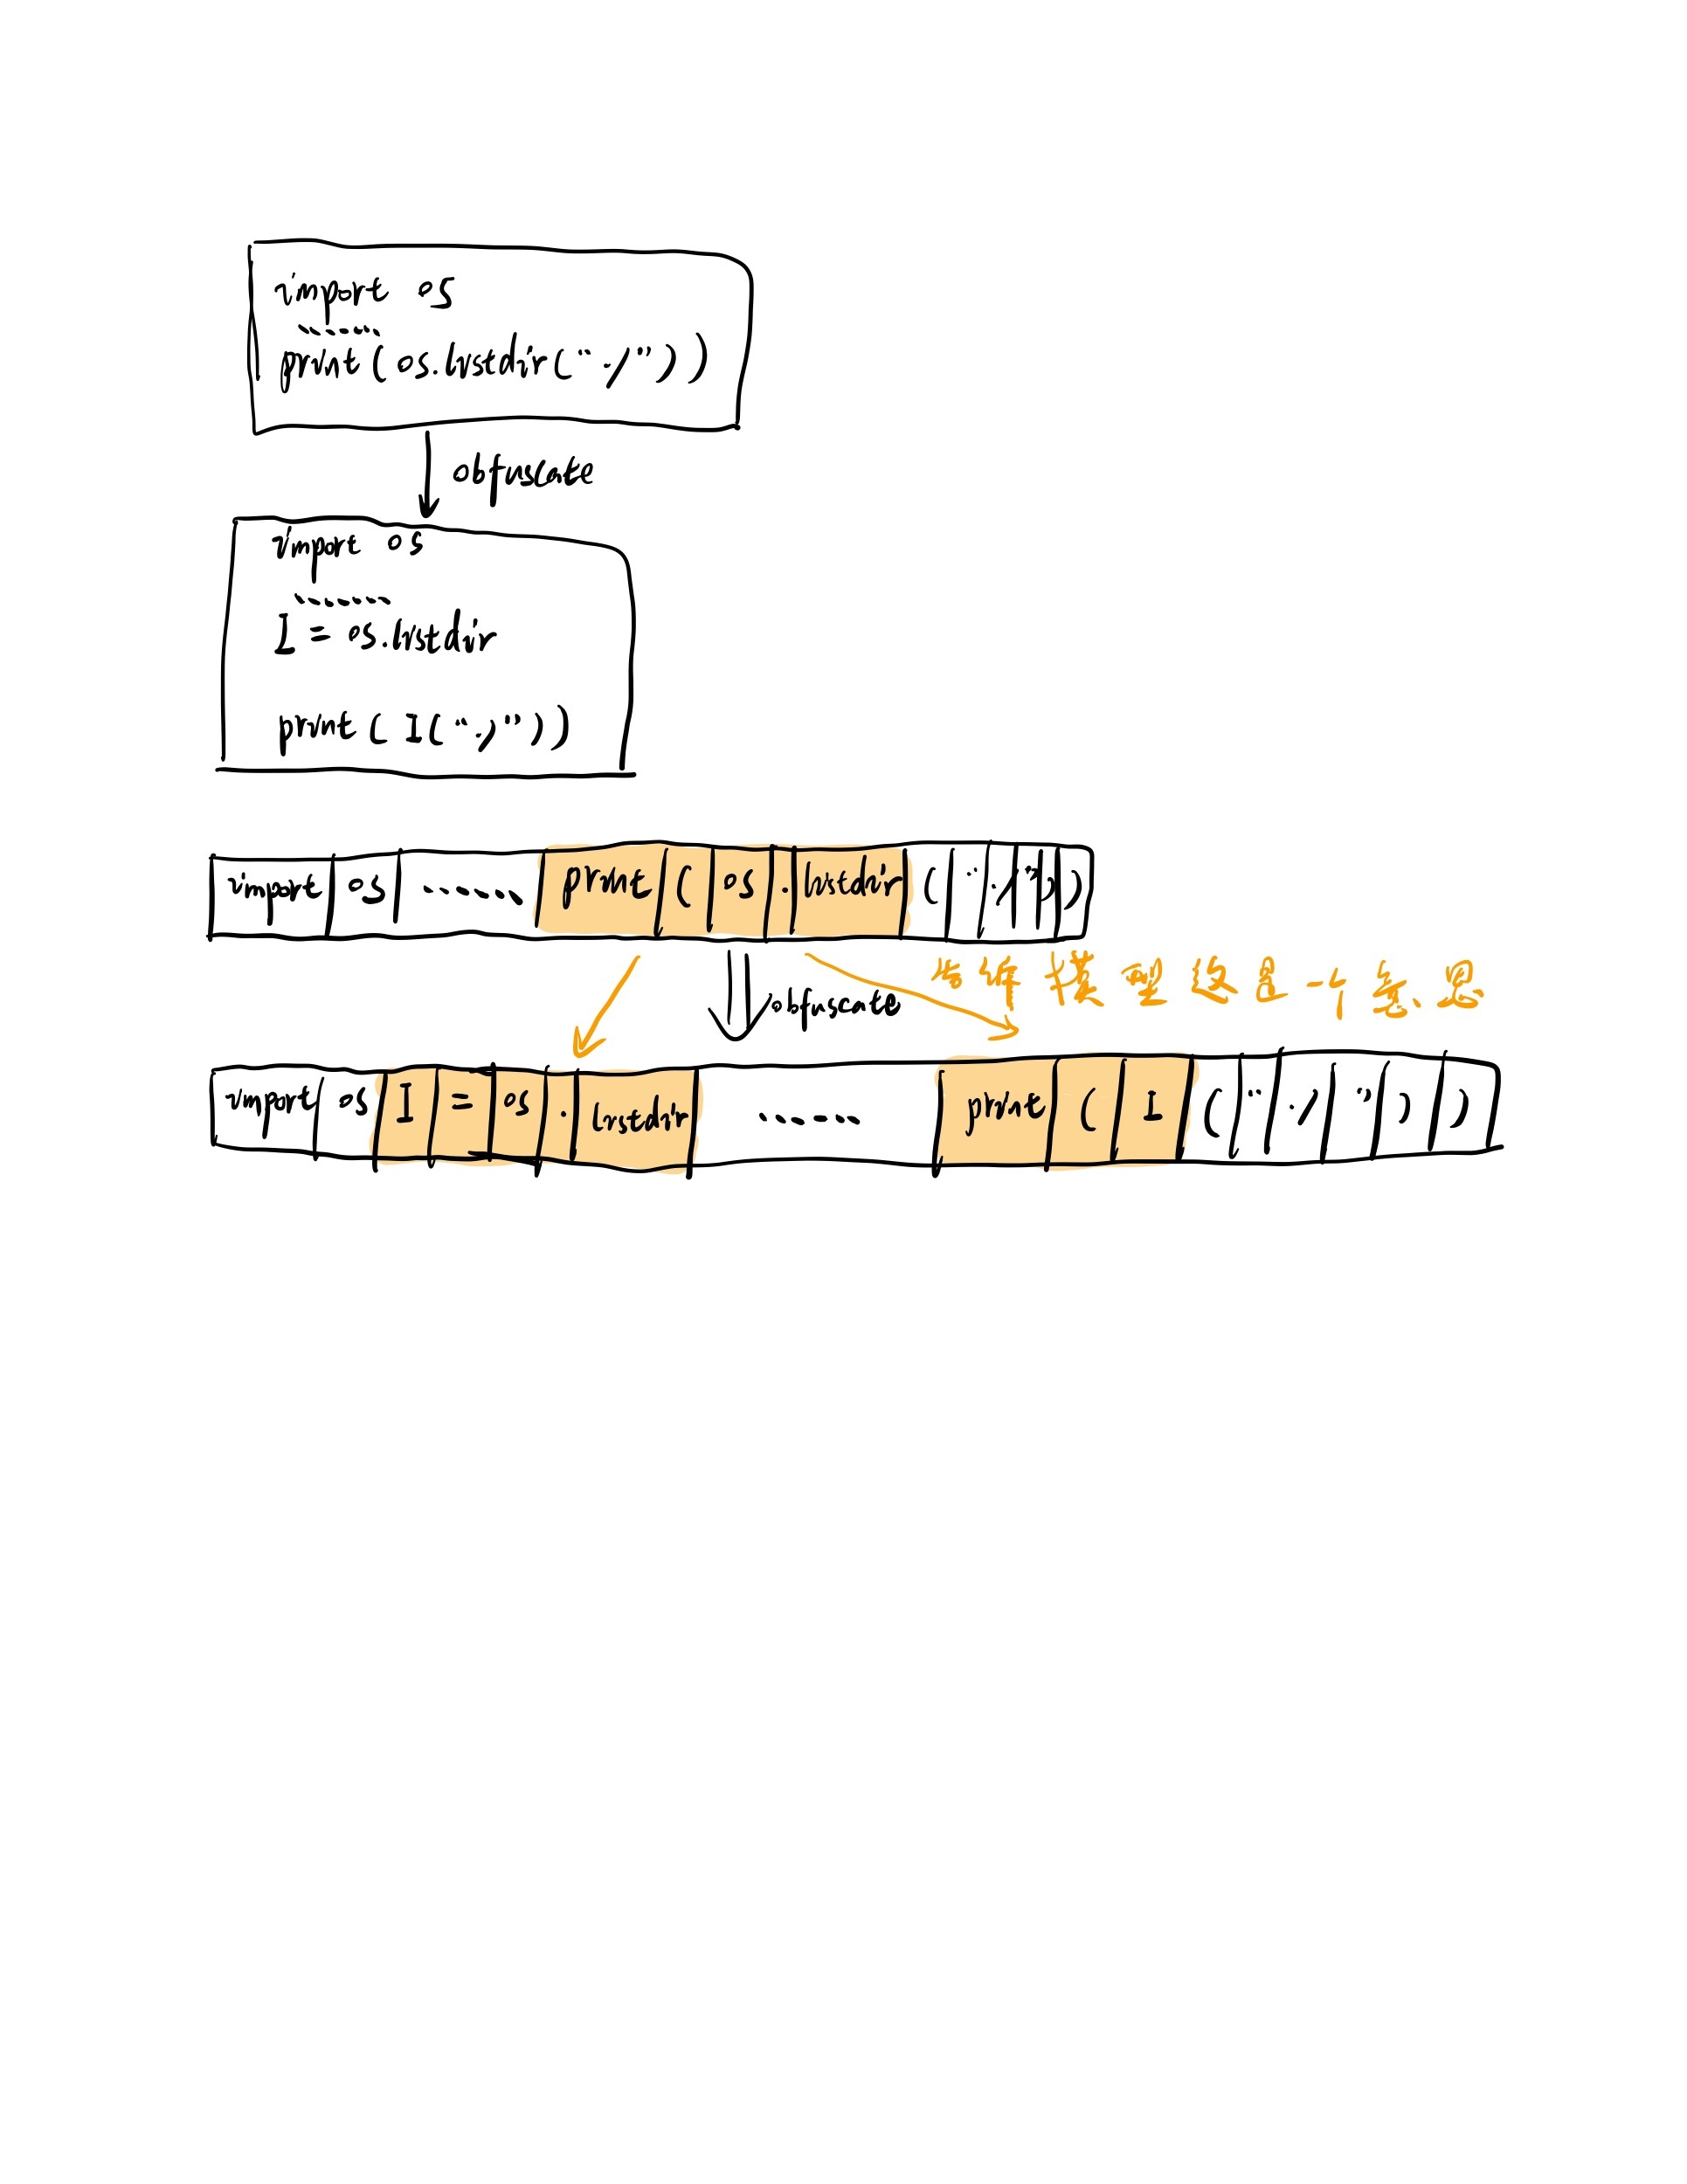 import os
......
print(os.listdir("./"))
obfuscate
import os
.......
I = os.listdir
print( I("./"))
import os ...... print ( os . listdir ( " ./ " ) )
obfuscate
告诉模型这是一个意思
import os I = os . listdir ...... print ( I ( " ./ " ) )